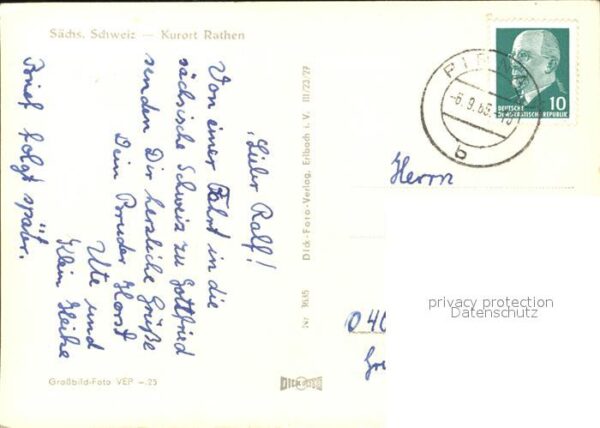 Sächs. Schweiz — Kurort Rathen
Lieber Ralf!
Von einer Fahrt in die
sächsische Schweiz zu Gottfried
senden Dir herzliche Grüße
Dein Bruder Horst
Ute und
Klein Heike
Brief folgt später.
Großbild-Foto VEP -.25
Dick-Foto-Verlag, Erlbach i. V. III/23/27
Nr. 3635
DICK FOTO
PIRNA
-6.9.65.
b
DEUTSCHE
DEMOKRATISCHE REPUBLIK
10
Herrn
privacy protection
Datenschutz